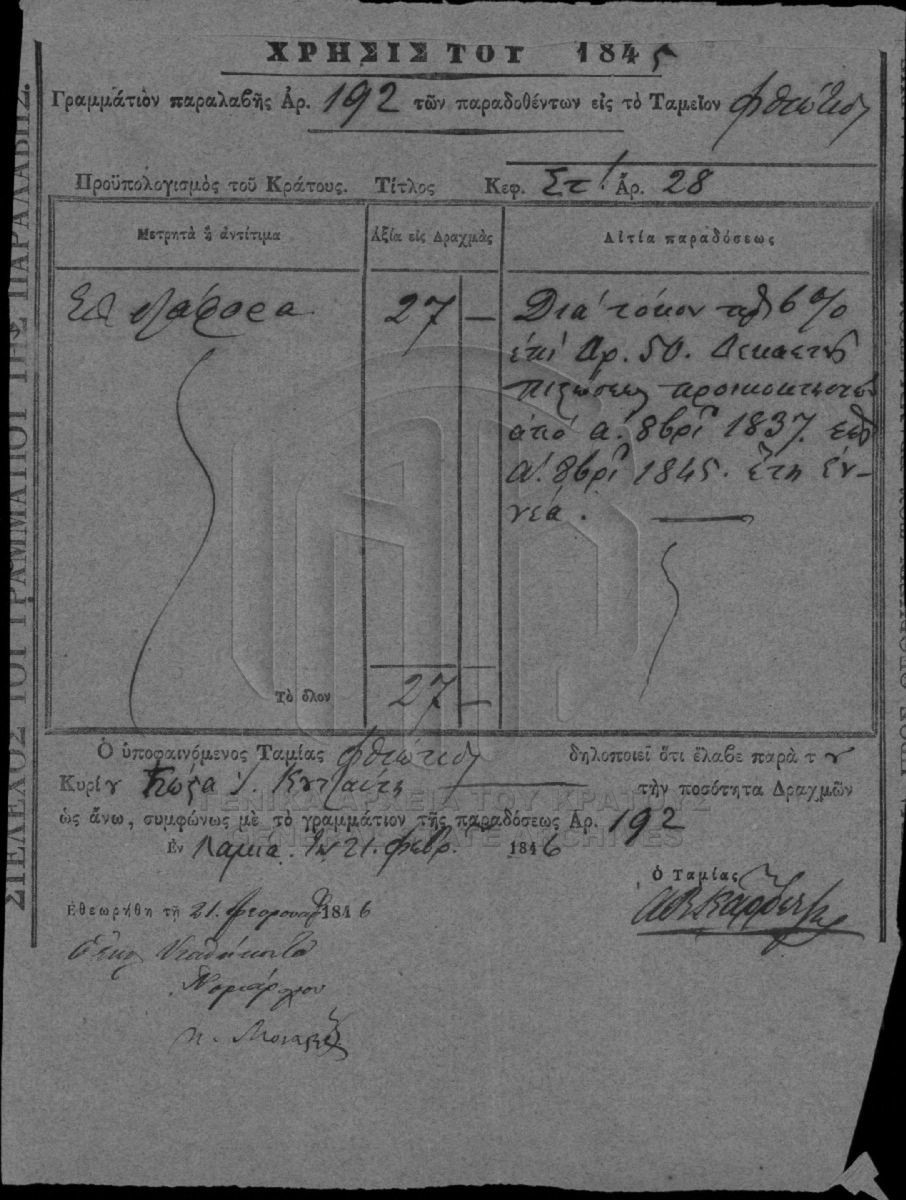 ΧΡΗΣΙΣ ΤΟΥ 1845
Γραμμάτιον παραλαβῆς Ἀρ. 192 τῶν παραδοθέντων εἰς τὸ Ταμεῖον Φθιώτιδος
Προϋπολογισμὸς τοῦ Κράτους. Τίτλος Κεφ. Στ'. Ἀρ. 28
Μετρητὰ ἢ ἀντίτιμα
Ἀξία εἰς Δραχμὰς
Αἰτία παραδόσεως
27 —
Διὰ τόκον πρὸς 6 %
ἐπὶ Δρ. 50. Δεκαετοῦς
πιστώσεως προικοδοτήσεως
ἀπὸ α. 8βρίου 1837. ἕως
α. 8βρίου 1845. ἔτη ἐν-
νέα.
Τὸ ὅλον 27 —
Ὁ ὑποφαινόμενος Ταμίας Φθιώτιδος δηλοποιεῖ ὅτι ἔλαβε παρὰ του
Κυρίου τὴν ποσότητα Δραχμῶν
ὡς ἄνω, συμφώνως μὲ τὸ γραμμάτιον τῆς παραδόσεως Ἀρ. 192
Ἐν Λαμία. τὴν 21. Φεβρ. 1846
Ὁ Ταμίας
Ἐθεωρήθη τῇ 21. Φεβρουαρ 1846
Νομάρχου
ΣΤΕΛΕΧΟΣ ΤΟΥ ΓΡΑΜΜΑΤΙΟΥ ΤΗΣ ΠΑΡΑΛΑΒΗΣ.
ΓΕΝΙΚΑ ΑΡΧΕΙΑ ΤΟΥ ΚΡΑΤΟΥΣ
GENERAL STATE ARCHIVES